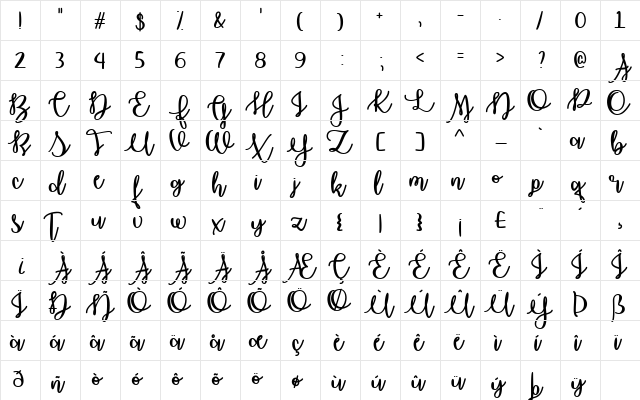 ! " # $ % & ' ( ) * , - . / 0 1
2 3 4 5 6 7 8 9 : ; < = > ? @ A
B C D E F G H I J K L M N O P Q
R S T U V W X Y Z [ ] ^ _ ` a b
c d e f g h i j k l m n o p q r
s t u v w x y z { | } ¡ £ ¨ ´ ¸
ı À Á Â Ã Ä Å Æ Ç È É Ê Ë Ì Í Î
Ï Ð Ñ Ò Ó Ô Õ Ö Ø Ù Ú Û Ü Ý Þ ß
à á â ã ä å æ ç è é ê ë ì í î ï
ð ñ ò ó ô õ ö ø ù ú û ü ý þ ÿ